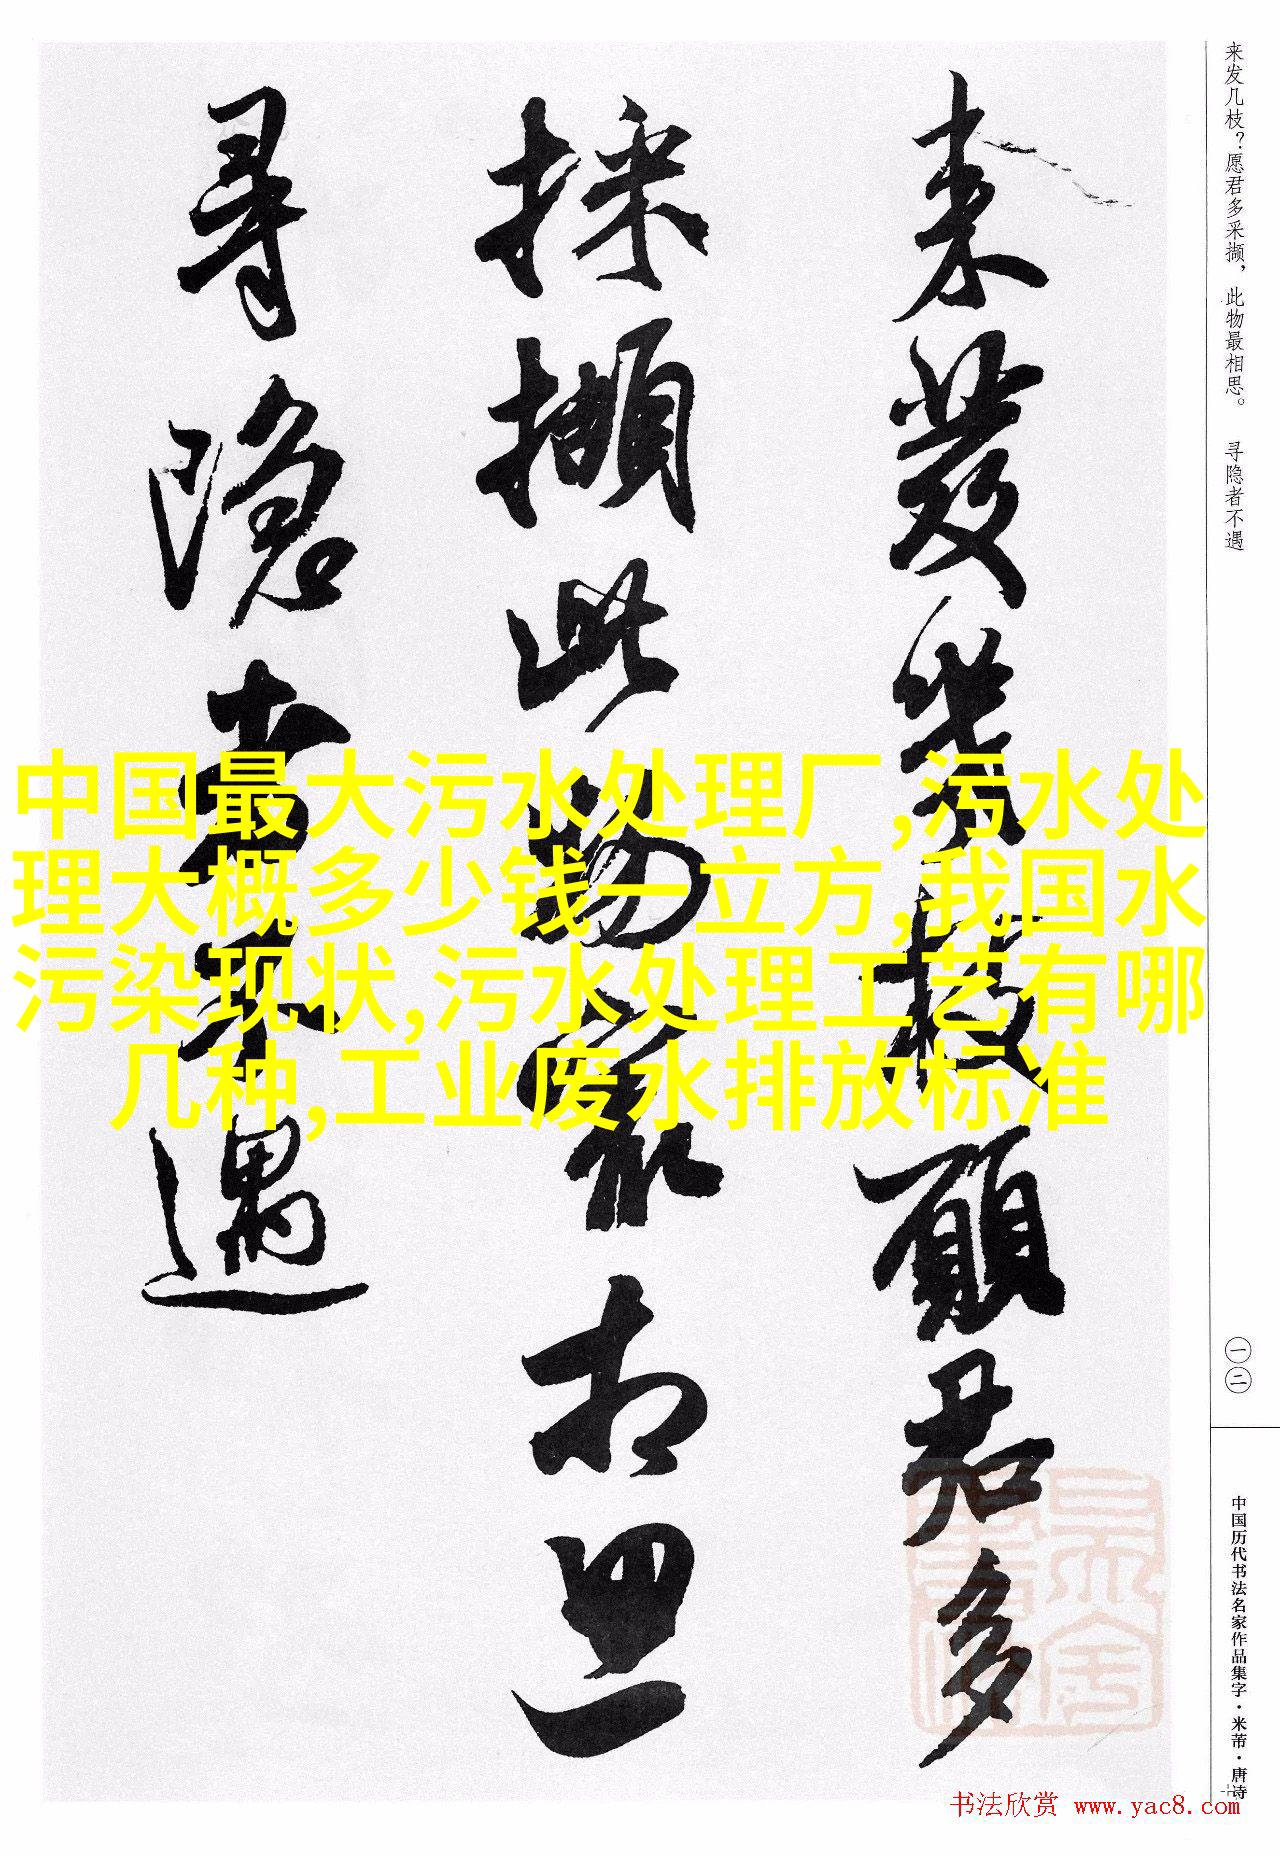 来发几枝？愿君多采撷，此物最相思。 寻隐者不遇
來發幾枝願君多
採擷此物最相思
尋隱者不遇
中国最大污水处理厂,污水处
理大概多少钱一立方,我国水
污染现状,污水处理工艺有哪
几种,工业废水排放标准
一二
中国历代书法名家作品集字·米芾·唐诗
书法欣赏 www.yac8.com